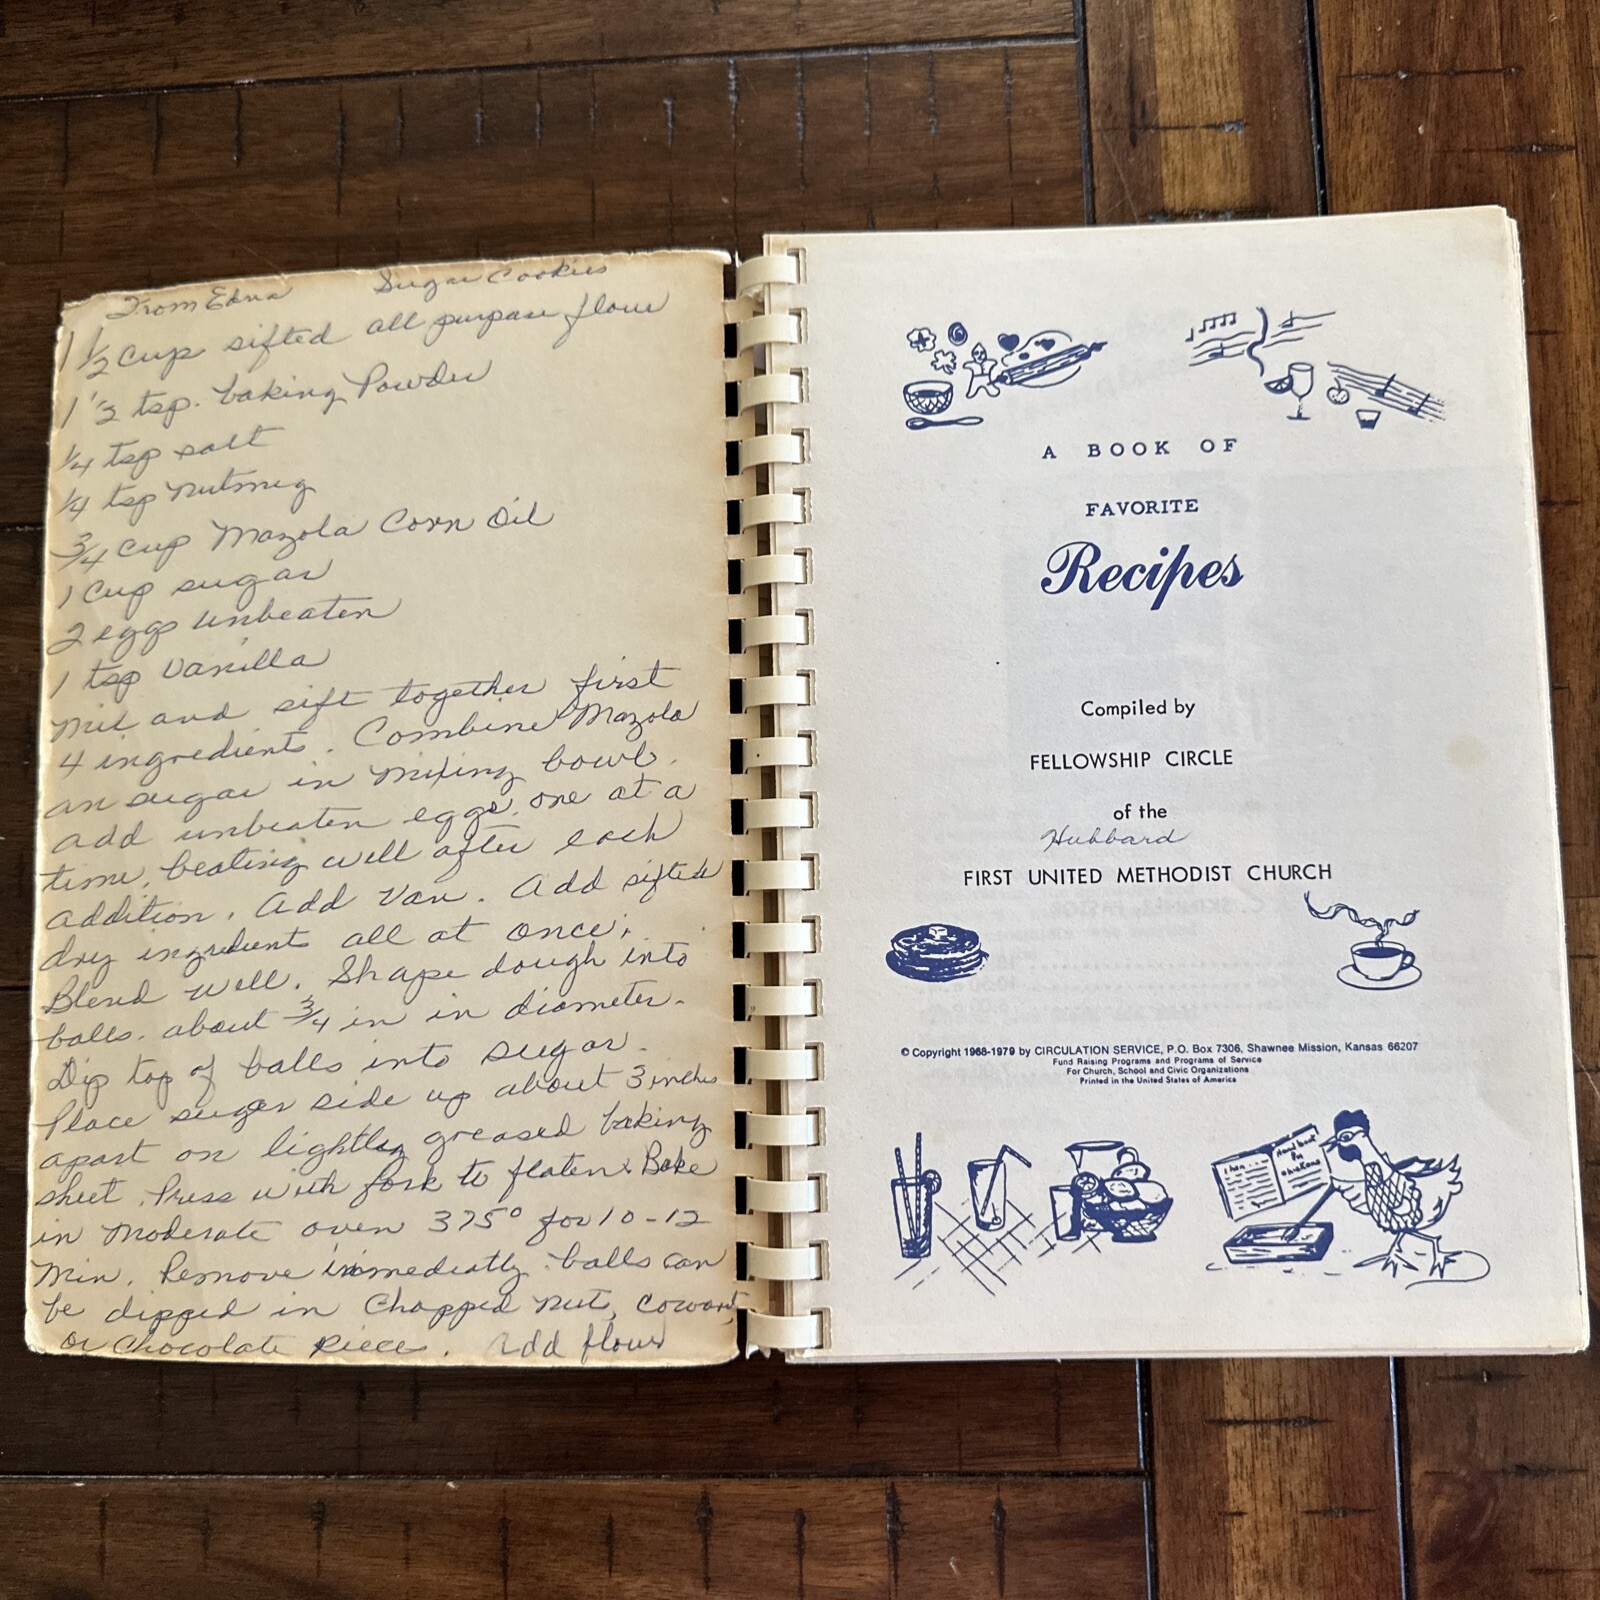 From Edna Sugar Cookies
1 1/2 cup sifted all purpose flour
1 1/2 tsp. baking Powder
1/4 tsp salt
1/4 tsp nutmeg
3/4 cup Mazola Corn Oil
1 cup sugar
2 eggs unbeaten
1 tsp Vanilla
mix and sift together first
4 ingredients. Combine Mazola
an sugar in mixing bowl.
add unbeaten eggs, one at a
time, beating well after each
addition. Add Van. Add sifted
dry ingredients all at once.
Blend well. Shape dough into
balls. about 3/4 in in diameter.
Dip top of balls into sugar.
Place sugar side up about 3 inches
apart on lightly greased baking
sheet. Press with fork to flaten. Bake
in moderate oven 375° for 10-12
Min. Remove immediatly. balls can
be dipped in Chopped nut,
or Chocolate piece. Add flour
A BOOK OF
FAVORITE
Recipes
Compiled by
FELLOWSHIP CIRCLE
of the
Hubbard
FIRST UNITED METHODIST CHURCH
© Copyright 1968-1979 by CIRCULATION SERVICE, P.O. Box 7306, Shawnee Mission, Kansas 66207
Fund Raising Programs and Programs of Service
For Church, School and Civic Organizations
Printed in the United States of America
Hand book
for
chickens